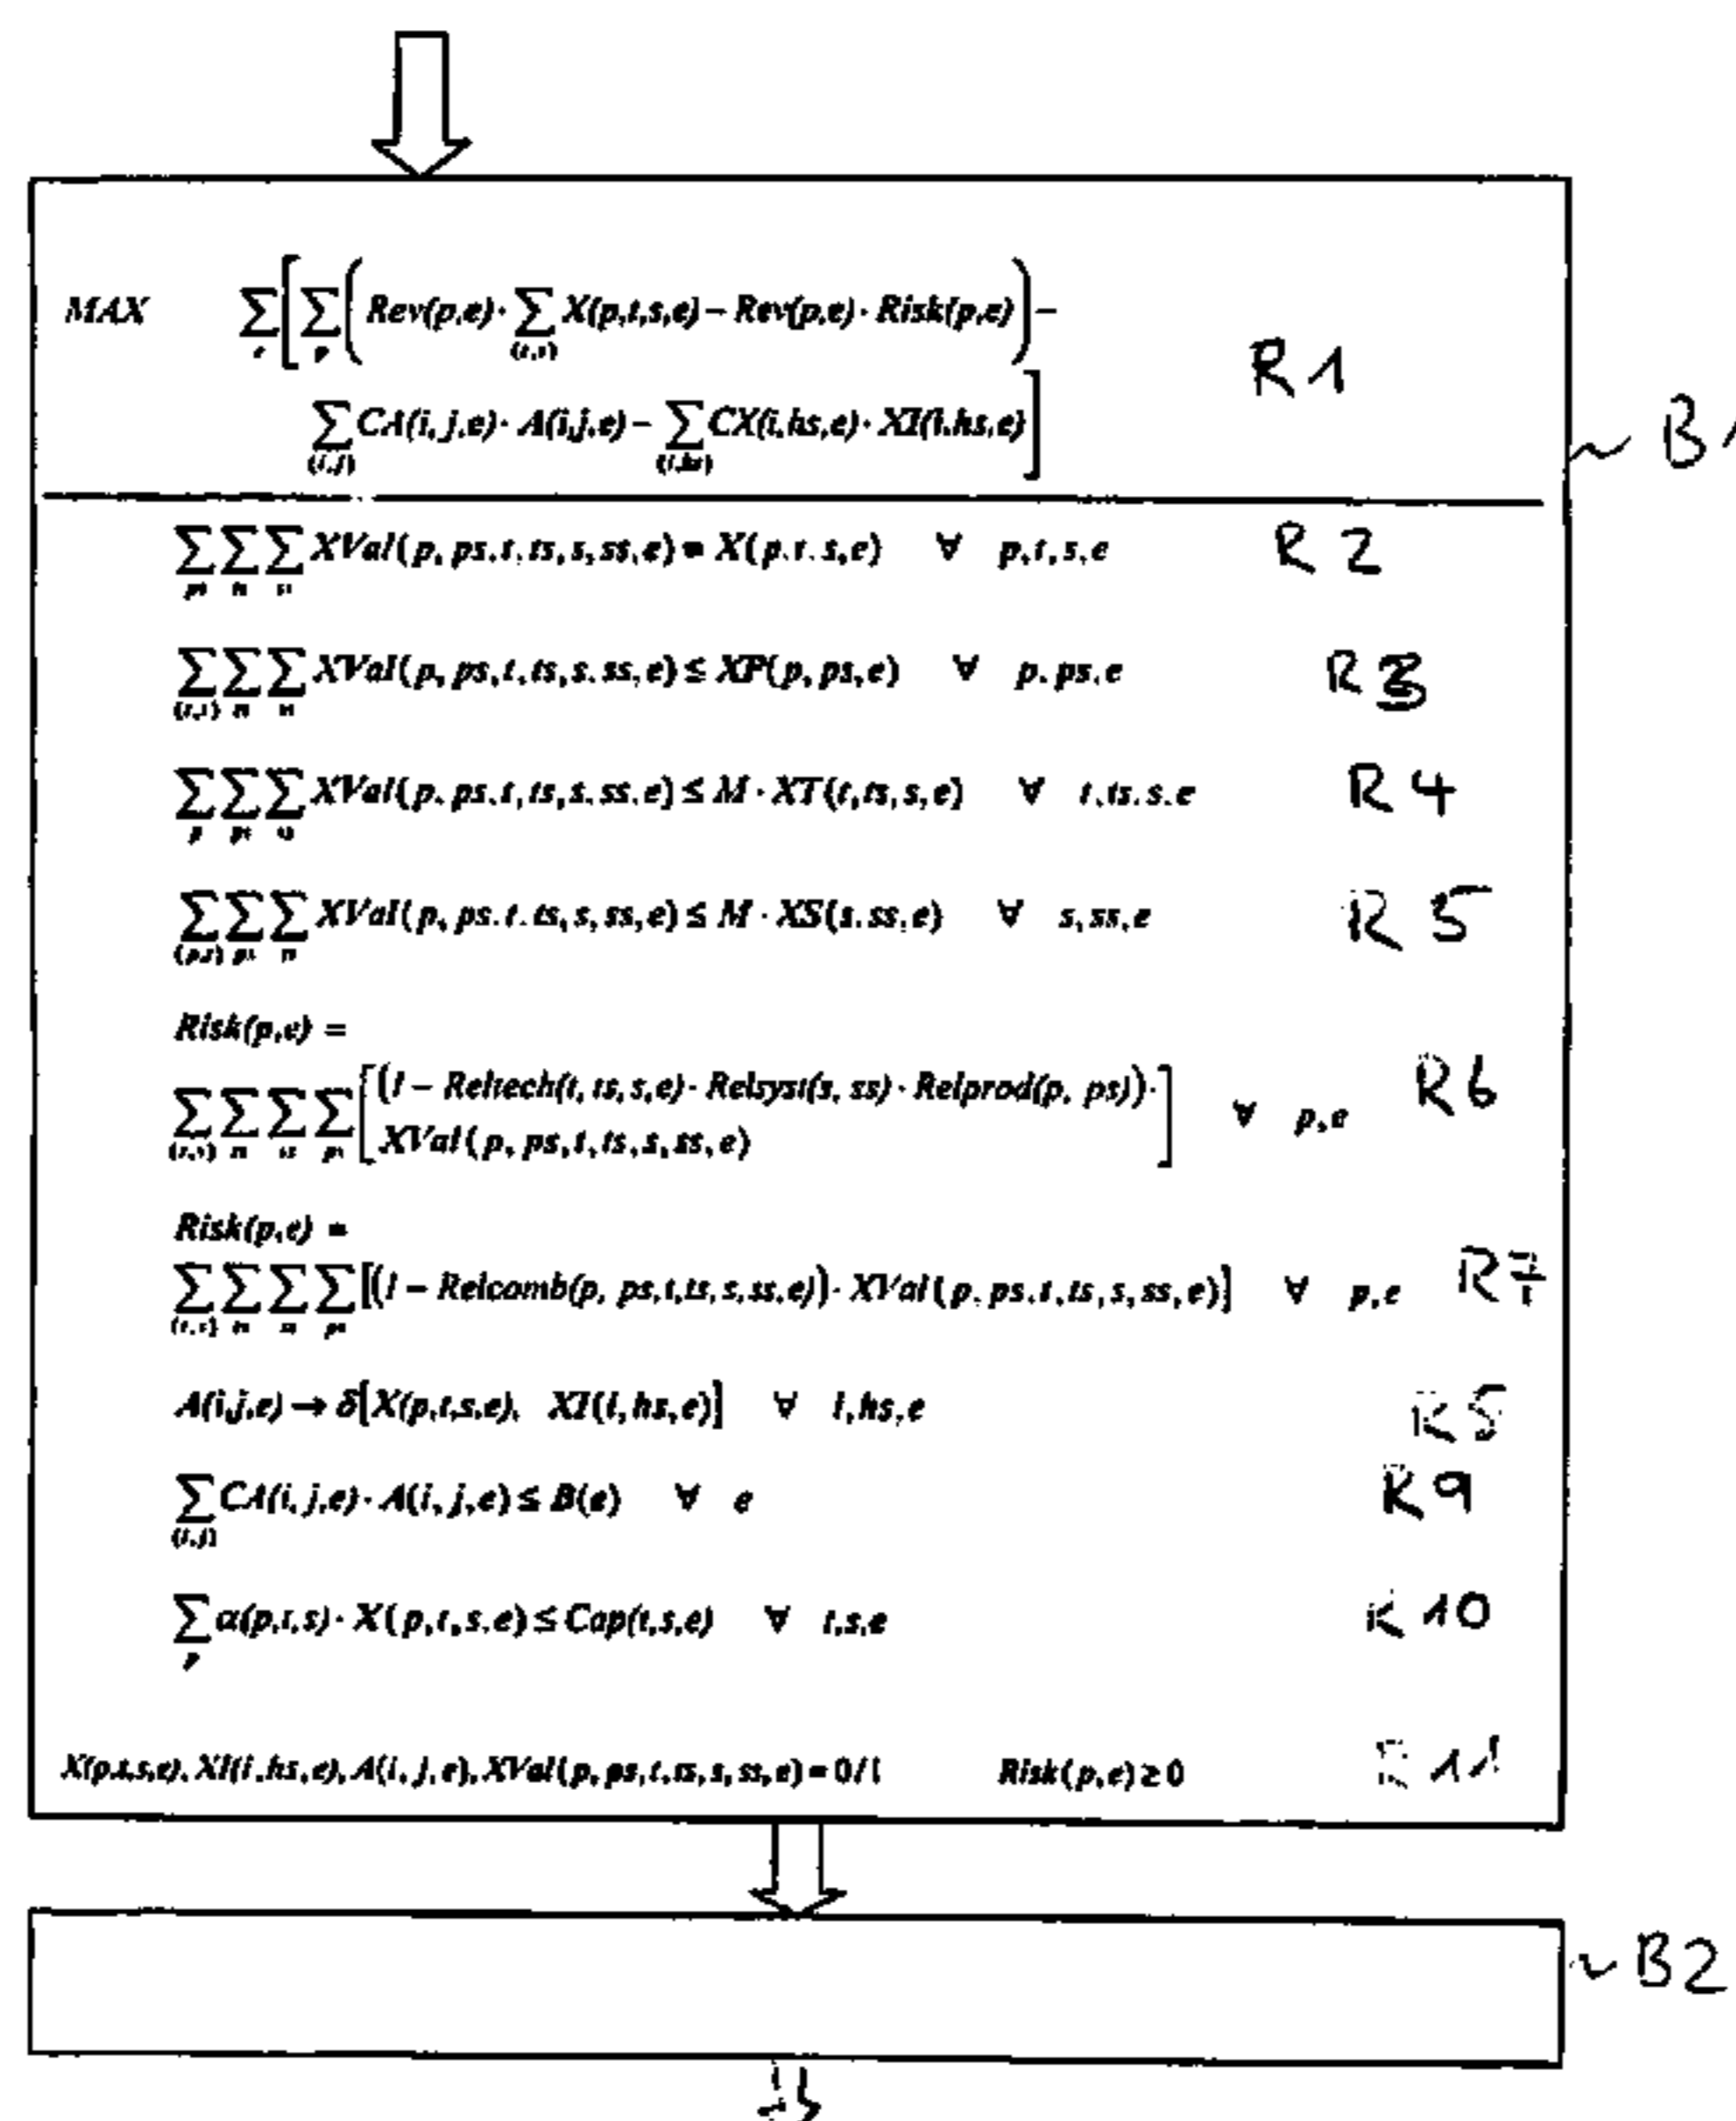 MAX ∑e[∑p(Rev(p,e)·∑(t,s) X(p,t,s,e) – Rev(p,e)·Risk(p,e)) – R1
∑(i,j) CA(i,j,e)·A(i,j,e) – ∑(i,hs) CX(i,hs,e)·XI(i,hs,e)] ~ B1
∑ps ∑ts ∑ss XVal(p, ps,t,ts,s,ss,e) = X(p,t,s,e) ∀ p,t,s,e R2
∑(t,s) ∑ts ∑ss XVal(p, ps,t,ts,s,ss,e) ≤ XP(p, ps,e) ∀ p,ps,e R3
∑p ∑ps ∑ss XVal(p, ps,t,ts,s,ss,e) ≤ M · XT(t,ts,s,e) ∀ t,ts,s,e R4
∑(p,t) ∑ps ∑ts XVal(p, ps,t,ts,s,ss,e) ≤ M · XS(s,ss,e) ∀ s,ss,e R5
Risk(p,e) =
∑(t,s) ∑ts ∑ss ∑ps [(1 – Reltech(t, ts,s,e)· Relsyst(s, ss)· Relprod(p, ps))· ∀ p,e R6
XVal(p, ps,t,ts,s,ss,e)]
Risk(p,e) =
∑(t,s) ∑ts ∑ss ∑ps [(1 – Relcomb(p, ps,t,ts,s,ss,e))· XVal(p, ps,t,ts,s,ss,e)] ∀ p,e R7
A(i,j,e) → δ[X(p,t,s,e), XI(i,hs,e)] ∀ i,hs,e
∑(i,j) CA(i,j,e)· A(i,j,e) ≤ B(e) ∀ e R9
∑p α(p,t,s)· X(p,t,s,e) ≤ Cap(t,s,e) ∀ t,s,e R10
X(p,t,s,e), XI(i,hs,e), A(i,j,e), XVal(p, ps,t,ts,s,ss,e) = 0/1 Risk(p,e) ≥ 0 R11
~ B2